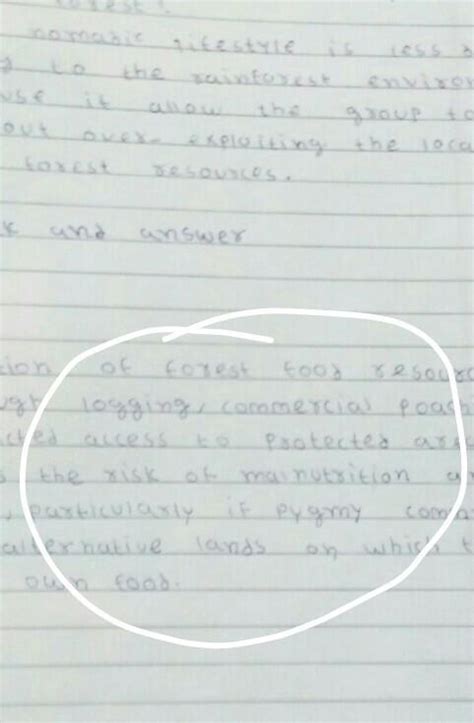 nomadic lifestyle is less
to the rainforest
it allow the group to
out over-exploiting the
forest resources.
and answer
of forest food
logging, commercial
access to protected
the risk of malnutrition
particularly if pygmy
alternative lands on which
own food.